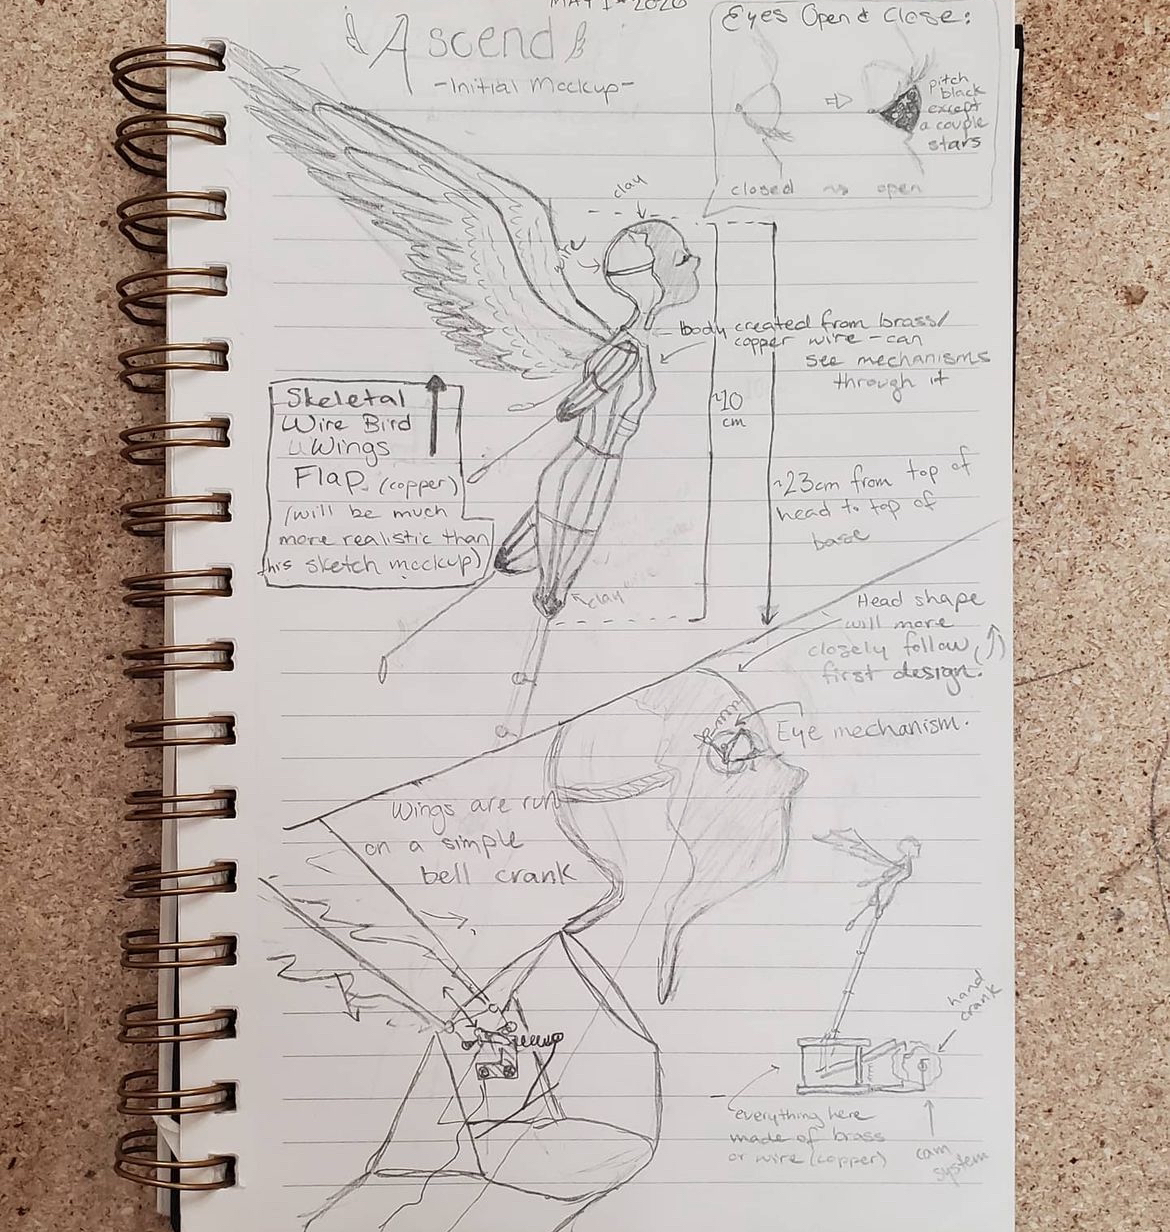 MAY 1st 2020
Ascend
-Initial Mockup-
Eyes Open & Close:
pitch
black
except
a couple
stars
closed ~> open
clay
wire
body created from brass/
copper wire - can
see mechanisms
through it
~10
cm
~23cm from top of
head to top of
base
Skeletal
Wire Bird
Wings
Flap (copper)
(will be much
more realistic than
this sketch mockup)
clay
Head shape
will more
closely follow (↑)
first design.
Eye mechanism.
Wings are run
on a simple
bell crank
hand
crank
everything here
made of brass
or wire (copper)
cam
system